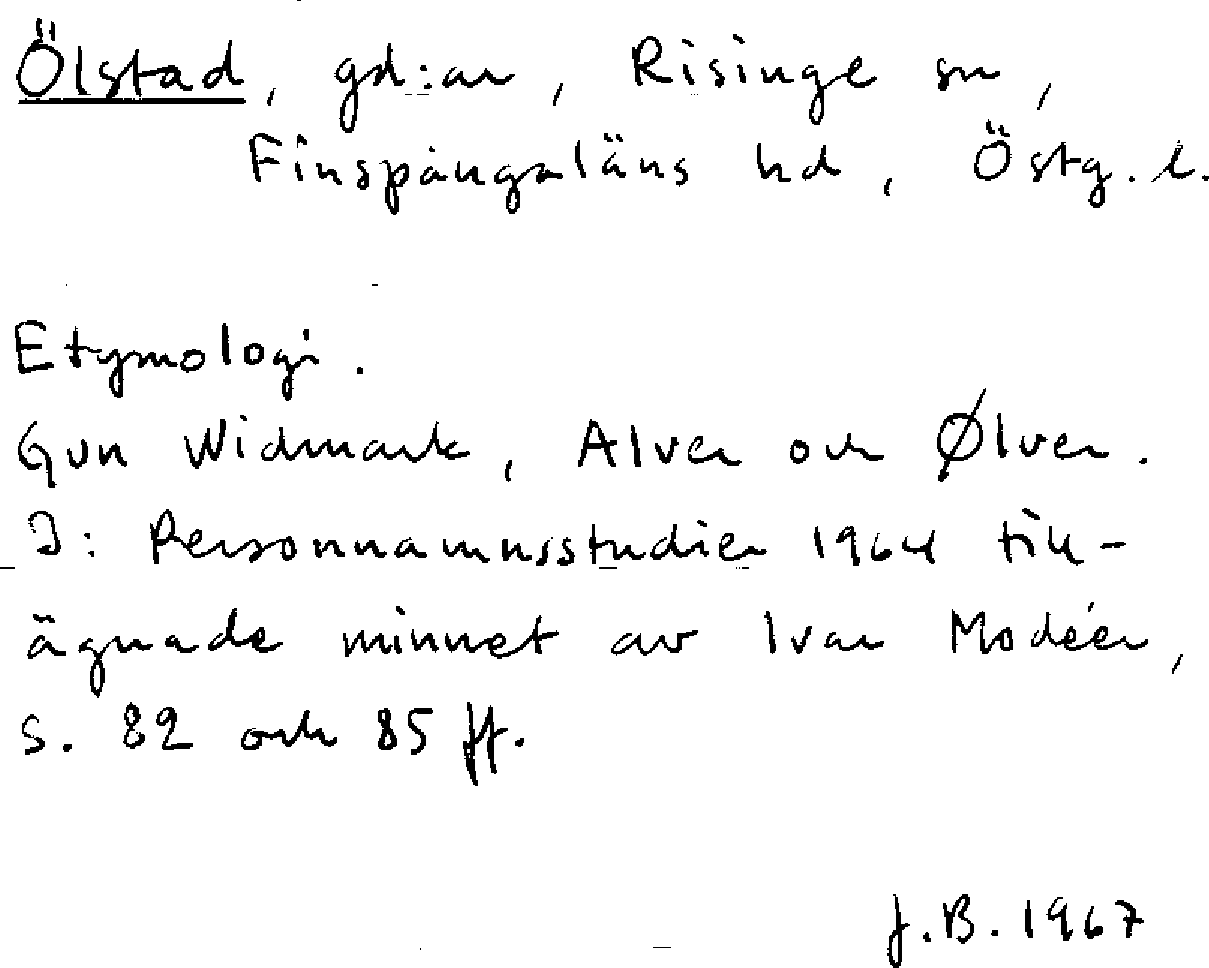 Ölstad, gd:ar, Risinge sn,
Finspångaläns hd, Östg. l.
Etymologi.
Gun Widmark, Alver och Ølver.
I: Personnamnsstudier 1964 till-
ägnade minnet av Ivar Modéer,
s. 82 och 85 ff.
J.B. 1967